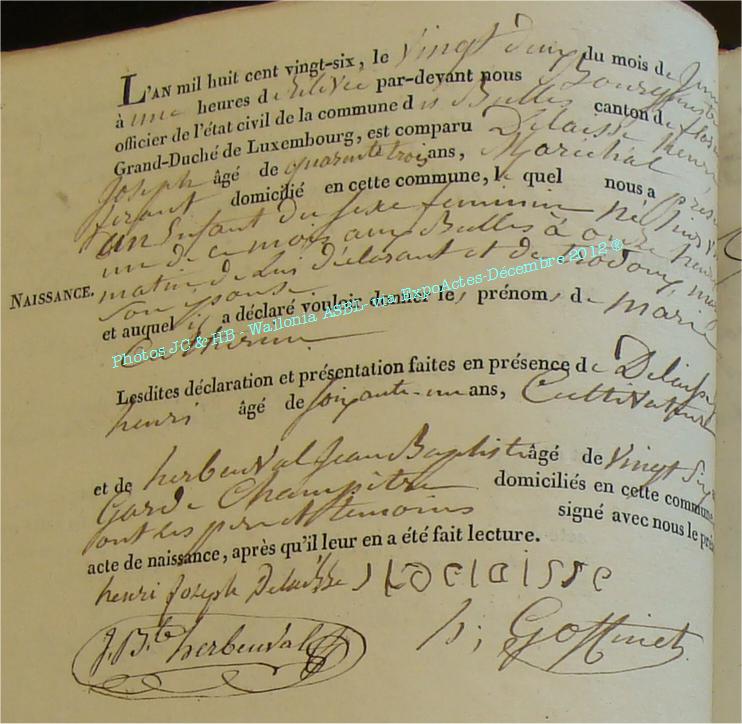 L'AN mil huit cent vingt-six, le vingt deux du mois de juin
à une heures de Relevée par-devant nous Bourgmestre
officier de l'état civil de la commune des Bulles canton de
Grand-Duché de Luxembourg, est comparu Delaisse henri
Joseph âgé de quarante trois ans, Maréchal
ferant domicilié en cette commune, le quel nous a
un Enfant du sexe feminin né
un de ce mois aux Bulles à onze heures
NAISSANCE.
matin de Lui Déclarant et de
son Epouse
et auquel il a déclaré vouloir donner les prénoms de marie
Catherine
Photos JG & HB - Wallonia ASBL- via ExpoActes-Décembre 2012 ®
Lesdites déclaration et présentation faites en présence de Delaisse
henri âgé de soixante-un ans, Cultivateur
et de herbeuval Jean Baptiste âgé de vingt
Garde Champêtre domiciliés en cette commune,
ont les père et temoins signé avec nous le
acte de naissance, après qu'il leur en a été fait lecture.
henri Joseph Delaisse
J. B.te herbeuval h; Goffinet